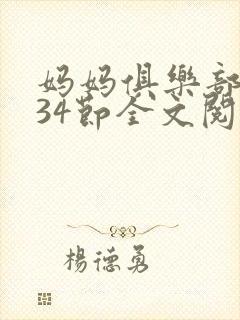 妈妈俱樂部
34節全文閱
楊德勇